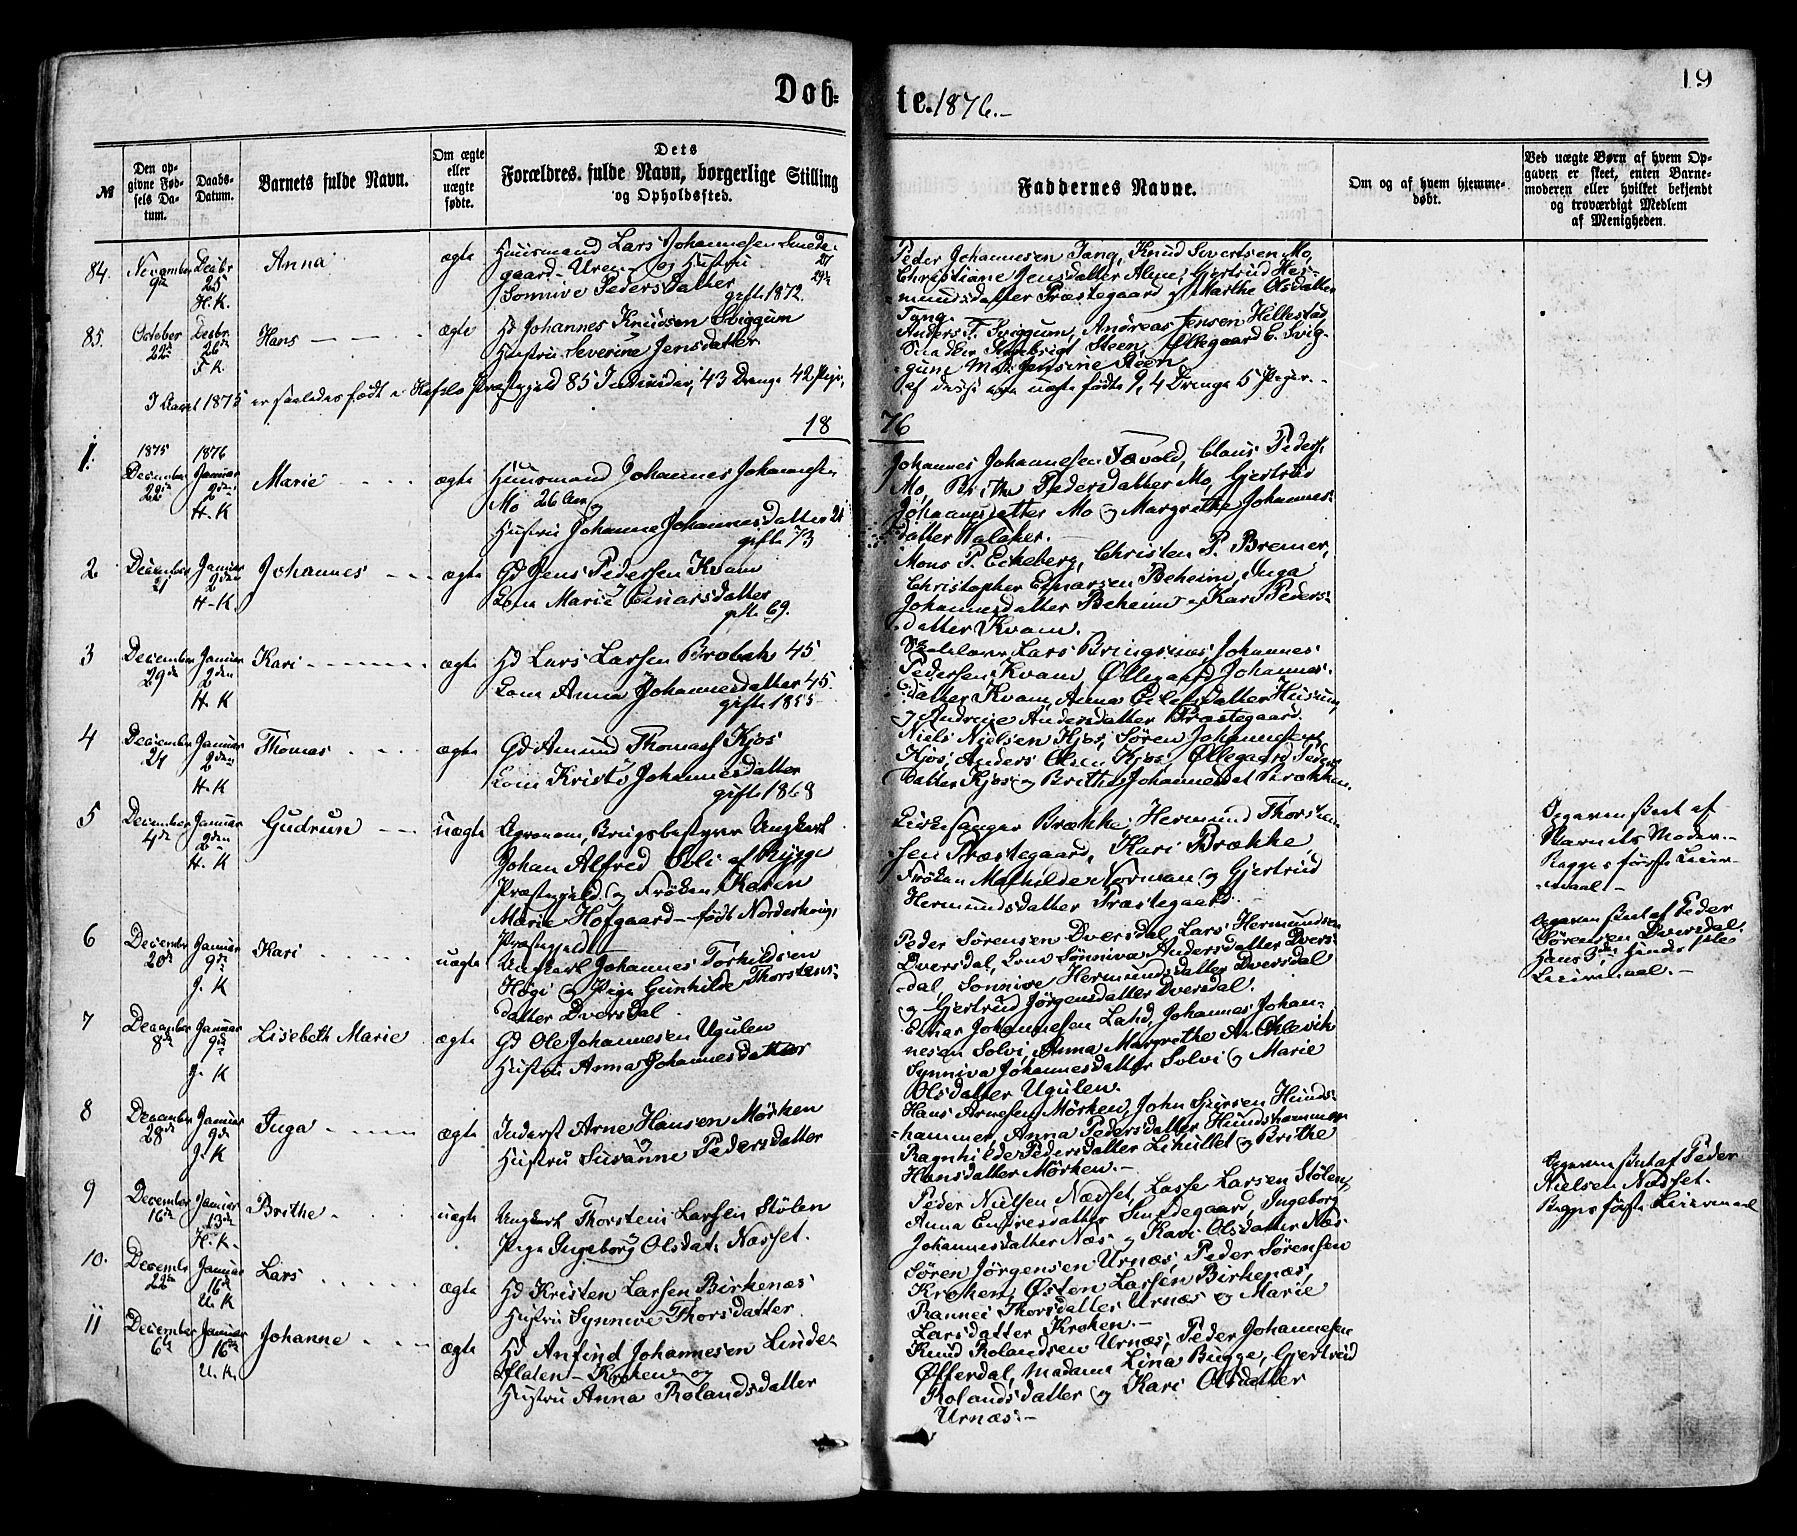 19
Døb=
te. 1876.-
№
Den op-
givne Fød-
sels Da-
tum.
Daabs-
Datum.
Barnets fulde Navn.
Om ægte
eller
uægte
fødte.
Dets
Forældres fulde Navn, borgerlige Stilling
og Opholdssted.
Faddernes Navne.
Om og af hvem hjemme-
døbt.
Ved uægte Børn af hvem Op-
gaven er skeet, enten Barne-
moderen eller hvilket bekjendt
og troværdigt Medlem
af Menigheden.
84. November
9de
Decbr
25
H. K.
Anna
ægte
Huusmand Lars Johannesen Smede-
gaard - Uren og Hustru
Sønnive Pedersdatter
gifte 1872.
Peder Johannesen Tang, Knud Sivertsen Mo,
Christiane Jensdatter Alme, Gjertrud Her-
mundsdatter Præstegaard og Marthe Olsdatter
Tang.
85. October
22de
Decbr.
26de
F. K.
Hans
ægte
Gd Johannes Knudsen Sviggum
Hustru Severine Jensdatter
Anders T. Sviggum, Andreas Jensen Hillestad
Steen, Øllegaard E. Svig-
gum Md. Jensine Steen
I Aaret 1875 er saaledes født i Hafslo Præstegjeld 85 Individer, 43 Drenge 42 Piger,
af disse ere uægte fødte 9, 4 Drenge 5 Piger.
18 76
1.
1875
December
22de
1876
Januar
2den
H. K
Marie
ægte
Huusmand Johannes Johannesen
Mo 26 Aar og
Hustru Johanne Johannesdatter 21
gifte 73
Johannes Johannesen Fævold, Claus Peders.
Mo, Brithe Pedersdatter Mo, Gjertrud
Johannesdatter Mo og Margrethe Johannes-
datter Walaker.
2 December
21
Januar
2den
H-K
Johannes
ægte
Gd Jens Pedersen Kvam
Kone Marie Einarsdatter
gifte 69.
Mons P. Eikeberg, Christen P. Bremer,
Christopher Einarsen Beheim, Inga
Johannesdatter Beheim og Kari Peders-
datter Kvam.
3 December
29de
Januar
2den
H. K
Kari
ægte
Gd Lars Larsen Brobak 45
Kone Anna Johannesdatter 45.
gifte 1855
Skolelærer Lars Bringsnæs, Johannes
Pedersen Kvam, Øllegaard Johannes-
datter Kvam, Anna Eilefsdatter Husum,
og Andrine Andersdatter Præstegaard.
4 December
24
Januar
2den
H. K
Thomas
ægte
Gd Amund Thomass. Kjos
Kone Kristi Johannesdatter
gifte 1868
Niels Nielsen Kjos, Søren Johannesen
Kjos, Anders Olsen Kjos, Øllegaard Peders-
datter Kjos og Brithe Johannesdat. Brækken.
5 December
4de
Januar
2den
H. K
Gudrun
uægte
Agronom, Brugsbestyrer Ungkarl
Johan Alfred Soli af Rygge
Præstegjeld og Frøken Karen
Marie Hofgaard - født Norderhougs
Præstegjeld
Kirkesanger Brække, Hermund Thorsten-
sen Præstegaard, Kari Brække
Frøken Mathilde Norman og Gjertrud
Hermundsdatter Præstegaard.
Opgaven skeet af
Barnets Moder.
Begges første Leier-
maal -
6 December
20de
Januar
9de
J. K
Kari
uægte
Ungkarl Johannes Torkildsen
Høgi og Pige Gunhilde Thorstens-
datter Dversdal
Peder Sørensen Dversdal, Lars Hermundsen
Dversdal, Kone Sønniva Andersdatter Dvers-
dal, Sønnive Hermundsdatter Dversdal
og Gjertrud Jørgensdatter Dversdal.
Opgaven skeet af Peder
Sørensen Dversdal.
Hans 3die, Hendes 1ste
Leiermaal. -
7 December
8de
Januar
9de
J. K
Lisebeth Marie
ægte
Gd Ole Johannesen Ugulen
Hustru Anna Johannesdatter
Einar Johannesen Land, Johannes Johan-
nesen Solvi, Anna Margrethe A. Ohlevik
Synniva Johannesdatter Solvi og Marie
Olsdatter Ugulen.
8 December
28de
Januar
9de
J. K
Inga
ægte
Inderst Arne Hansen Mørken
og
Hustru Susanne Pedersdatter
Hans Arnesen Mørken, John Sjursen Hunds-
hammer, Anna Pedersdatter Hundshammer
Ragnhilde Pedersdatter Lihullet og Brithe
Hansdatter Mørken. -
9 December
16de
Januar
13de
H. K.
Brithe
uægte
Ungkarl Thorstein Larsen Stølen
Pige Ingeborg Olsdat. Næsset.
Peder Nielsen Næsset, Lasse Larsen Stølen,
Anna Endresdatter Smedegaard, Ingeborg
Johannesdatter Næs og Kari Olsdatter Næs
Opgaven skeet af Peder
Nielsen Næsset.
Begges første Leiermaal
10. December
22de
Januar
16de
U. K
Lars
ægte
Gd Kristen Larsen Birkenæs
Hustru Synneve Thorsdatter
Søren Jørgensen Urnæs, Peder Sørensen
Kroken, Østen Larsen Birkenæs,
Rannei Thorsdatter Urnæs og Marie
Larsdatter Kroken. -
11 December
6te
Januar
16de
U. K.
Johanne
ægte
Gd Anfind Johannesen Linde-
flaten - Kroken og
Hustru Anna Rolandsdatter
Knud Rolandsen Urnæs, Peder Johannesen
Øfferdal, Madam Lina Bugge, Gjertrud
Rolandsdatter og Kari Olsdatter
Urnæs. -